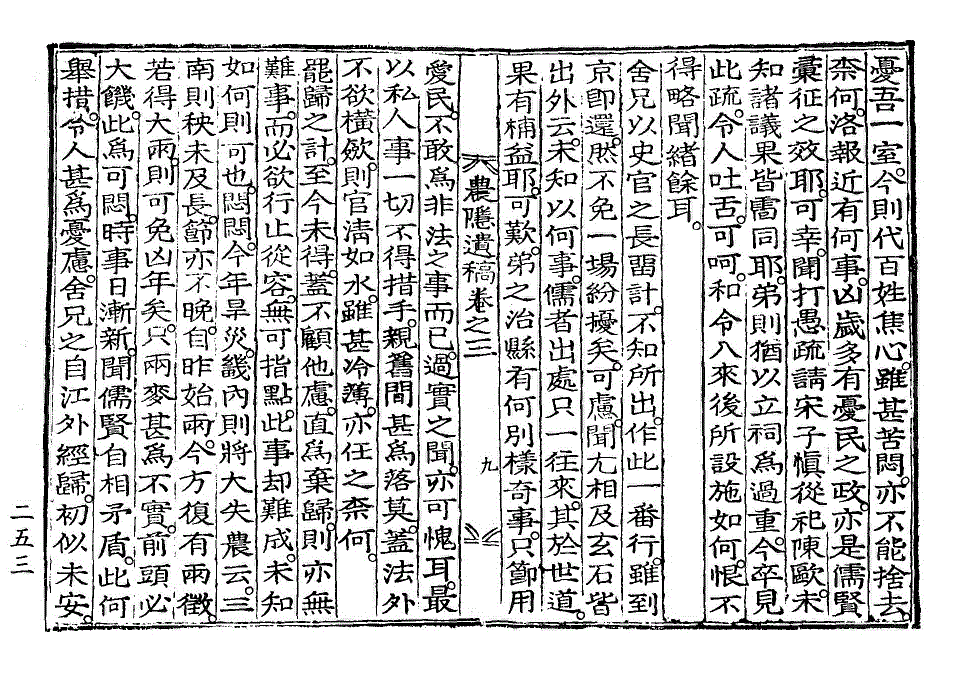 憂吾一室。今則代百姓焦心。雖甚苦悶。亦不能捨去。
柰何。洛報近有何事。凶歲多有憂民之政。亦是儒賢
彙征之效耶。可幸。聞打愚疏請宋子愼從祀陳歐。未
知諸議果皆雷同耶。弟則猶以立祠爲過重。今卒見
此疏。令人吐舌。可呵。和令入來後所設施如何。恨不
得略聞緖餘耳。
舍兄以史官之長留計。不知所出。作此一番行。雖到
京卽還。然不免一場紛擾矣。可慮。聞尢相及玄石皆
出外云。未知以何事。儒者出處只一往來。其於世道。
果有補益耶。可歎。弟之治縣有何別樣奇事。只節用
農隱遺稿卷之三
九
愛民。不敢爲非法之事而已。過實之聞。亦可愧耳。最
以私人事一切不得措手。親舊間甚爲落莫。蓋法外
不欲橫斂。則官淸如水。雖甚冷薄。亦任之柰何。
罷歸之計。至今未得。蓋不顧他慮。直爲棄歸。則亦無
難事。而必欲行止從容。無可指點。此事却難成。未知
如何則可也。悶悶。今年旱災。畿內則將大失農云。三
南則秧未及長。節亦不晩。自昨始雨。今方復有雨徵。
若得大雨。則可免凶年矣。只兩麥甚爲不實。前頭必
大饑。此爲可悶。時事日漸新。聞儒賢自相矛盾。此何
舉措。令人甚爲憂慮。舍兄之自江外經歸。初似未安。
二五三